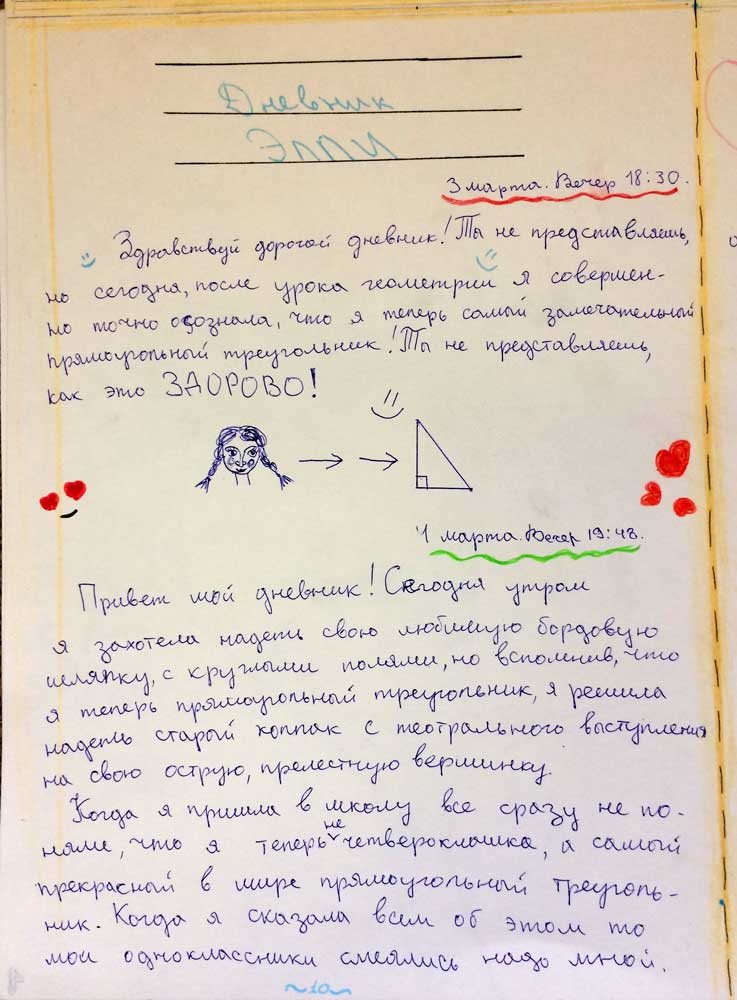 Дневник
Элли
3 марта. Вечер 18:30.
Здравствуй дорогой дневник! Ты не представляешь,
но сегодня, после урока геометрии я совершен-
но точно осознала, что я теперь самый замечательный
прямоугольный треугольник! Ты не представляешь,
как это ЗДОРОВО!
4 марта. Вечер 19:48.
Привет мой дневник! Сегодня утром
я захотела надеть свою любимую бордовую
шляпку, с круглыми полями, но вспомнив, что
я теперь прямоугольный треугольник, я решила
надеть старый колпак с теотрального выступления
на свою острую, прелестную вершинку.
Когда я пришла в школу все сразу не по-
няли, что я теперь не четвероклашка, а самый
прекрасный в мире прямоугольный треуголь-
ник. Когда я сказала всем об этом то
мои одноклассники смеялись надо мной.
~10~